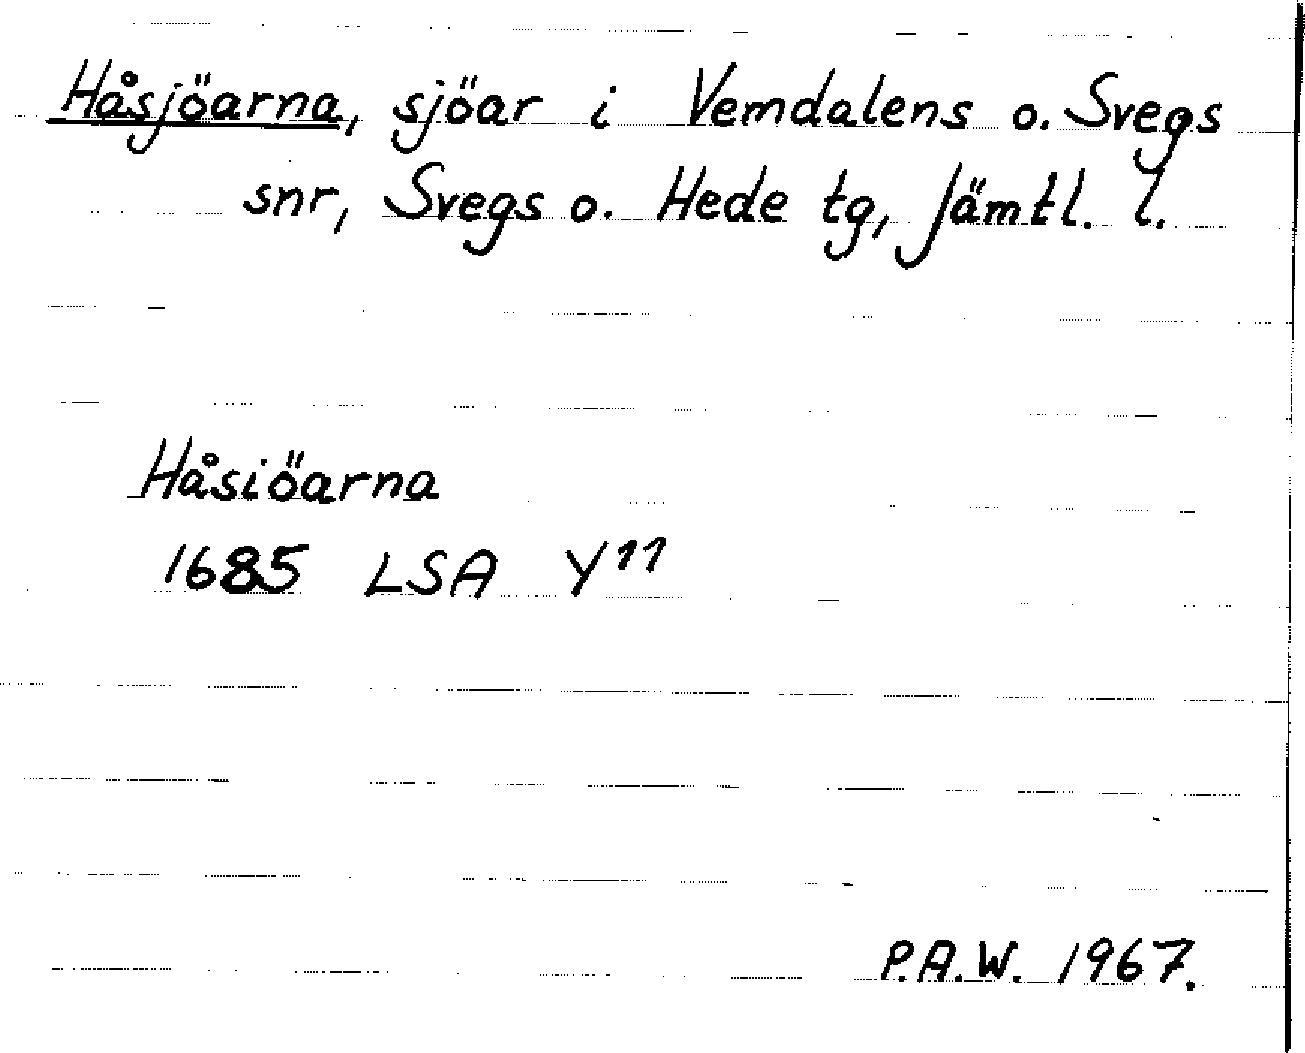 Håsjöarna, sjöar i Vemdalens o. Svegs
snr, Svegs o. Hede tg, Jämtl. l.
Håsiöarna
1685 LSA Y11
P.A.W. 1967.